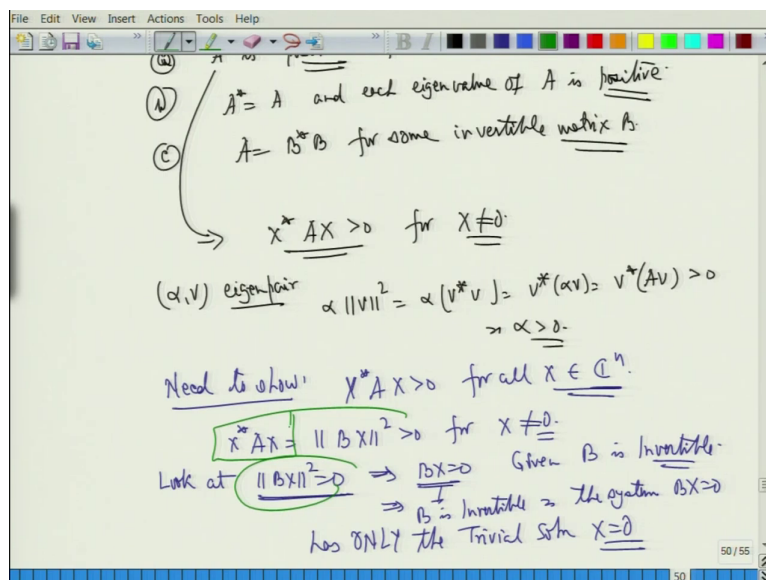 File Edit View Insert Actions Tools Help
(a) A is
(b) A* = A and each eigenvalue of A is positive.
(c) A = B*B for some invertible matrix B.
⇒ x* A x > 0 for x ≠ 0.
(α, v) eigenpair α ||v||² = α (v* v) = v*(αv) = v*(Av) > 0
⇒ α > 0.
Need to show: x* A x > 0 for all x ∈ ℂⁿ.
x* A x = || B x ||² > 0 for x ≠ 0.
Look at || B x ||² = 0 ⇒ Bx = 0 Given B is Invertible.
⇒ B is Invertible ⇒ the system BX=0
has ONLY the Trivial soln X=0
50 / 55
50